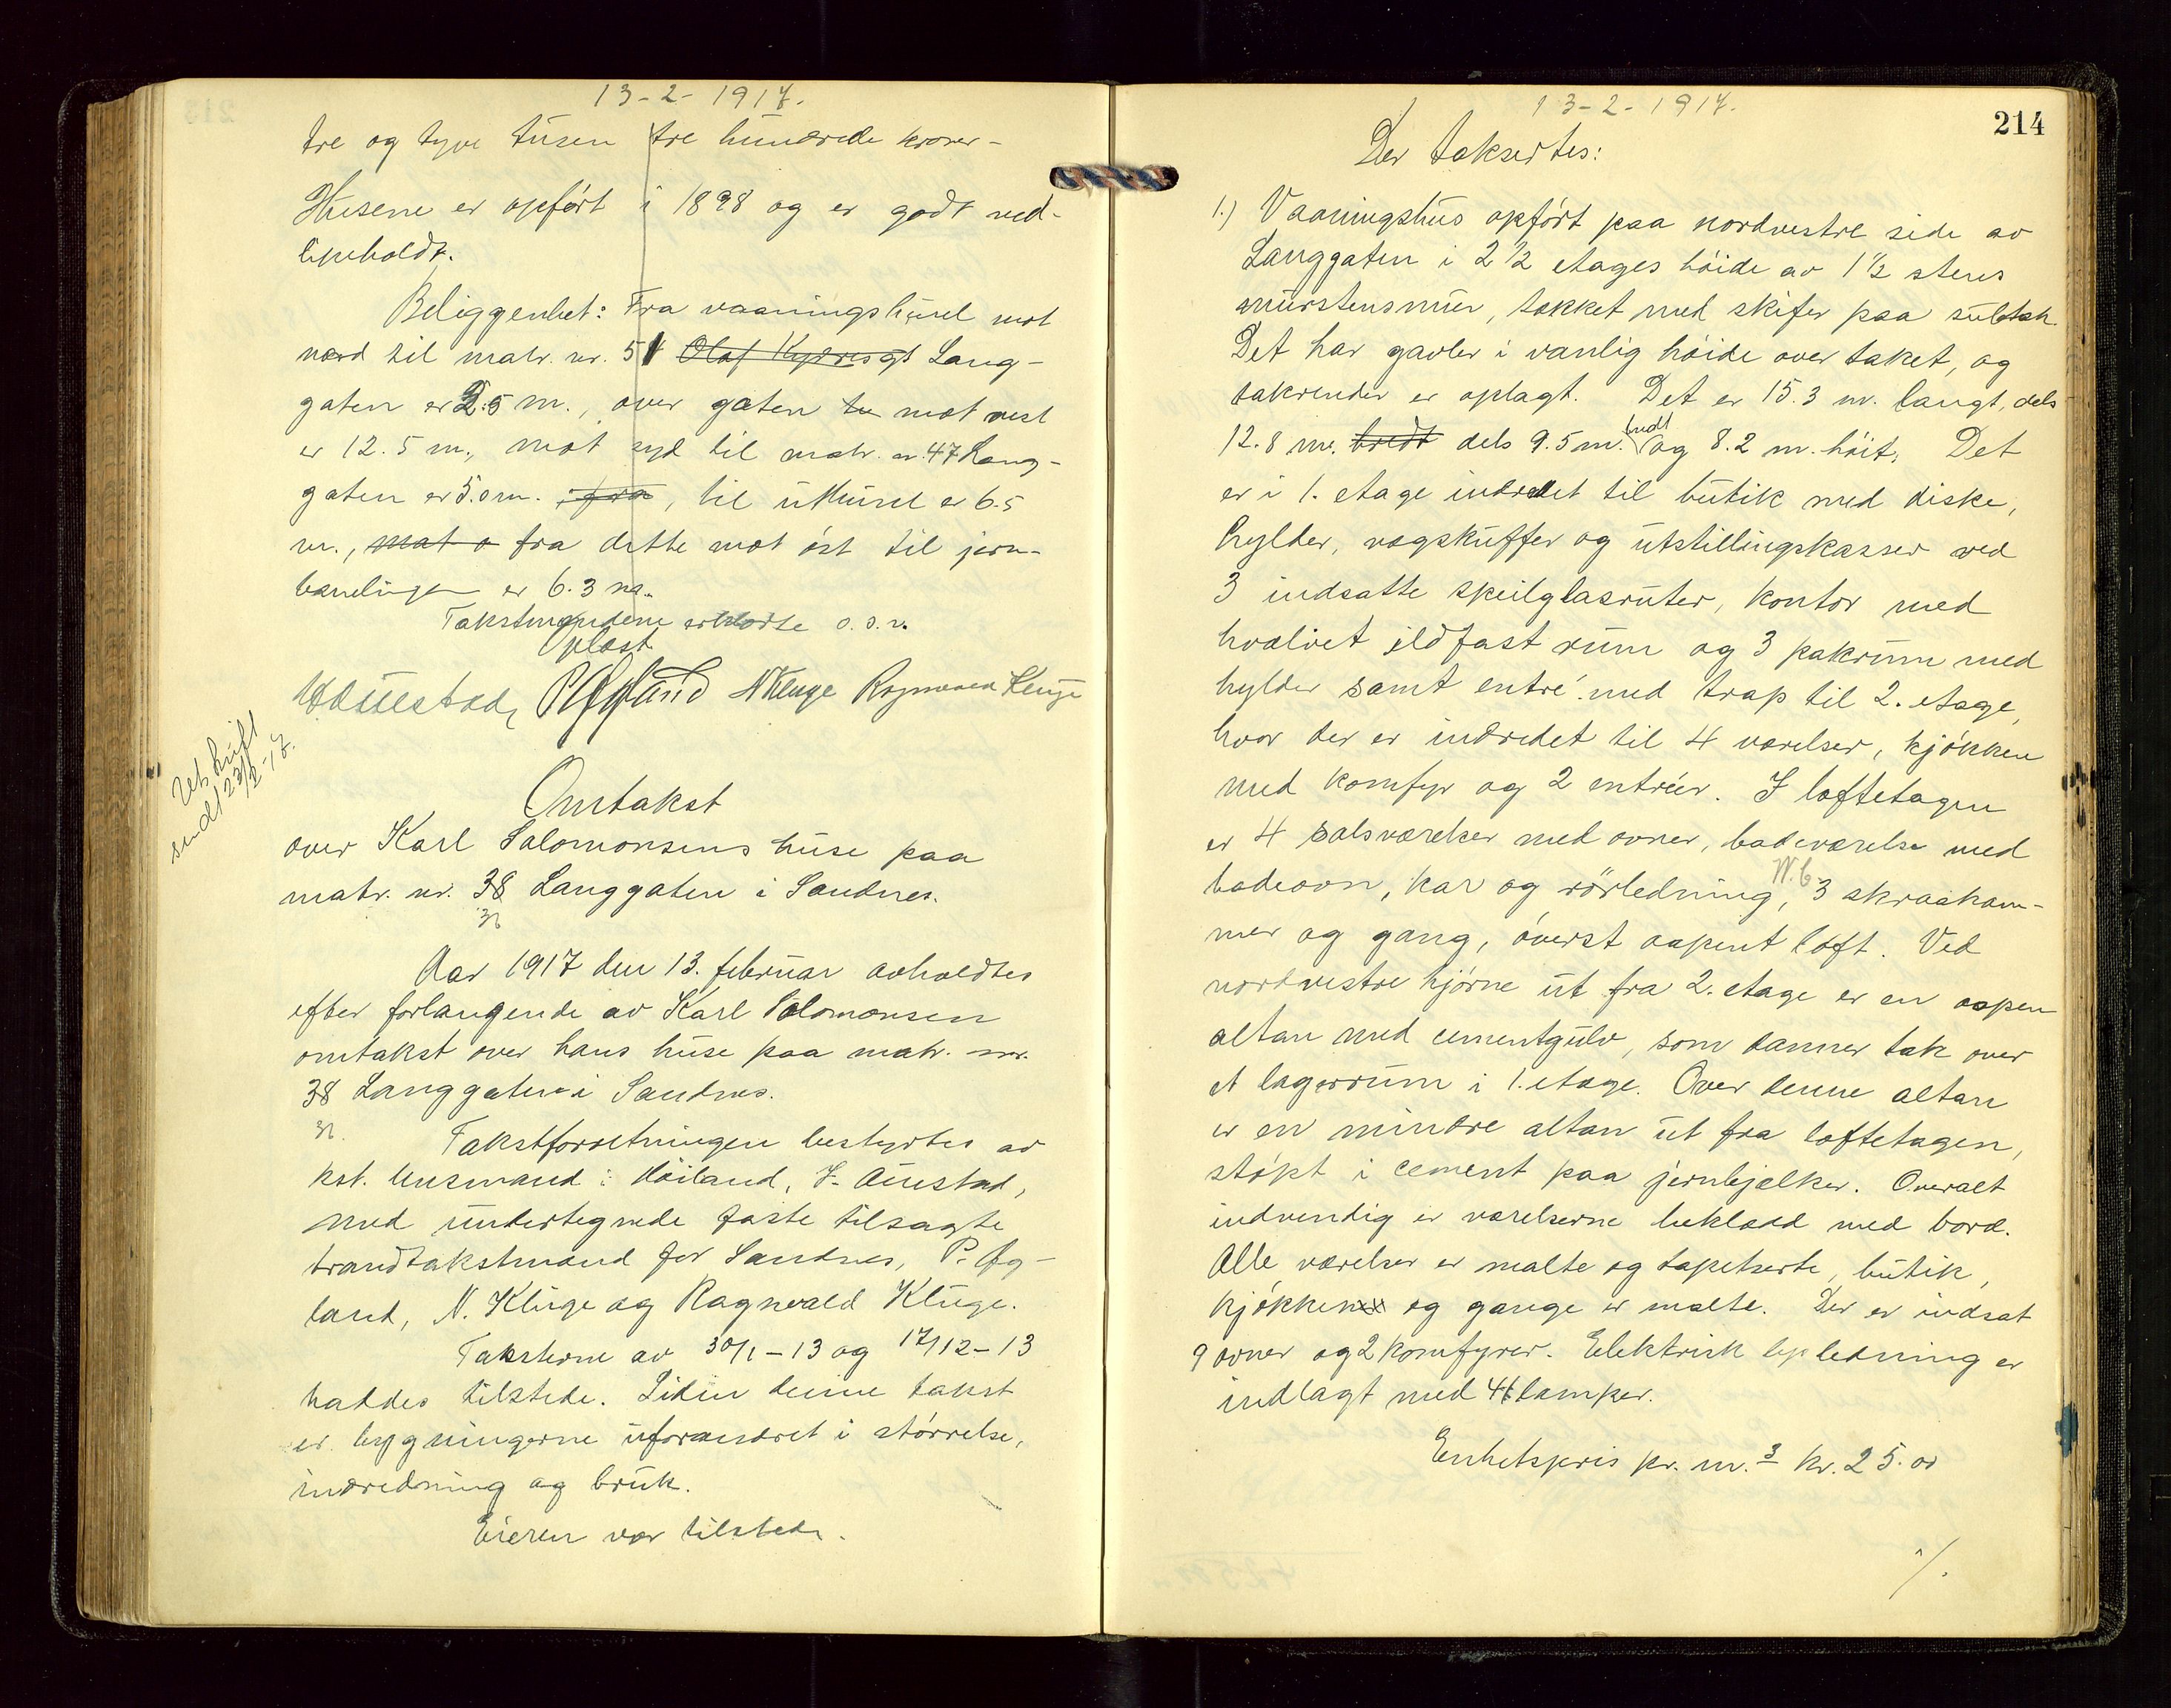 13-2-1917.
tre og tyve tusen tre hundrede kroner-
Husene er opført i 1898 og er godt ved-
likeholdt.
Beliggenhet: Fra vaaningshuset mot
nord til matr. nr. 51 Olaf Kyrresgt Lang-
gaten er 2.5 m., over gaten mot vest
er 12.5 m., mot syd til matr. nr. 47 Lang-
gaten er 5.0 m. , fra, til uthuset er 6.5
m., mot o fra dette mot øst til jern-
banelinjen er 6.3 m.
Takstmændene erklærte o.s.v.
Oplæst
J. Auestad, P. Øgland N Kluge Ragnvald Kluge
Utskrift
sendt 23/2-17.
Omtakst
over Karl Salomonsens huse paa
matr. nr. 38 Langgaten i Sandnes.
Aar 1917 den 13. februar avholdtes
efter forlangende av Karl Salomonsen
omtakst over hans huse paa matr. nr.
38 Langgaten i Sandnes.
Takstforretningen bestyrtes av
kst. lensmand i Høiland, J. Auestad,
med undertegnede faste tilsagte
brandtakstmænd for Sandnes, P. Øg-
land, N. Kluge og Ragnvald Kluge.
Taksterne av 30/1-13 og 17/12-13
haddes tilstede. Siden denne takst
er bygningerne uforandret i størrelse,
indredning og bruk.
Eieren var tilstede.
13-2-1917.
214
Der taksertes:
1.) Vaaningshus opført paa nordvestre side av
Langgaten i 2 1/2 etages høide av 1 1/2 stens
murstensmur, tækket med skifer paa sultak.
Det har gavler i vanlig høide over taket, og
takrender er oplagt. Det er 15.3 m. langt, dels
12.8 m. bredt dels 9.5 m. bredt og 8.2 m. høit. Det
er i 1. etage indredet til butik med diske,
hylder, vægskuffer og utstillingskasser ved
3 indsatte speilglasruter, kontor med
hvælvet ildfast rum og 3 pakrum med
hylder samt entré med trap til 2. etage,
hvor der er indredet til 4 værelser, kjøkken
med komfyr og 2 entréer. I loftetagen
er 4 salsværelser med ovner, badeværelse med
badeovn, kar og rørledning, W.C 3 skraakam-
mer og gang, øverst aapent loft. Ved
nordvestre hjørne ut fra 2. etage er en aapen
altan med cementgulv, som danner tak over
et lagerrum i 1. etage. Over denne altan
er en mindre altan ut fra loftetagen,
støpt i cement paa jernbjelker. Overalt
indvendig er værelserne beklædd med bord.
Alle værelser er malte og tapetserte, butik,
kjøkken og gange er malte. Der er indsat
9 ovner og 2 komfyrer. Elektrisk ledning er
indlagt med 41 lamper.
Enhetspris pr. m.3 kr. 25.00
./.